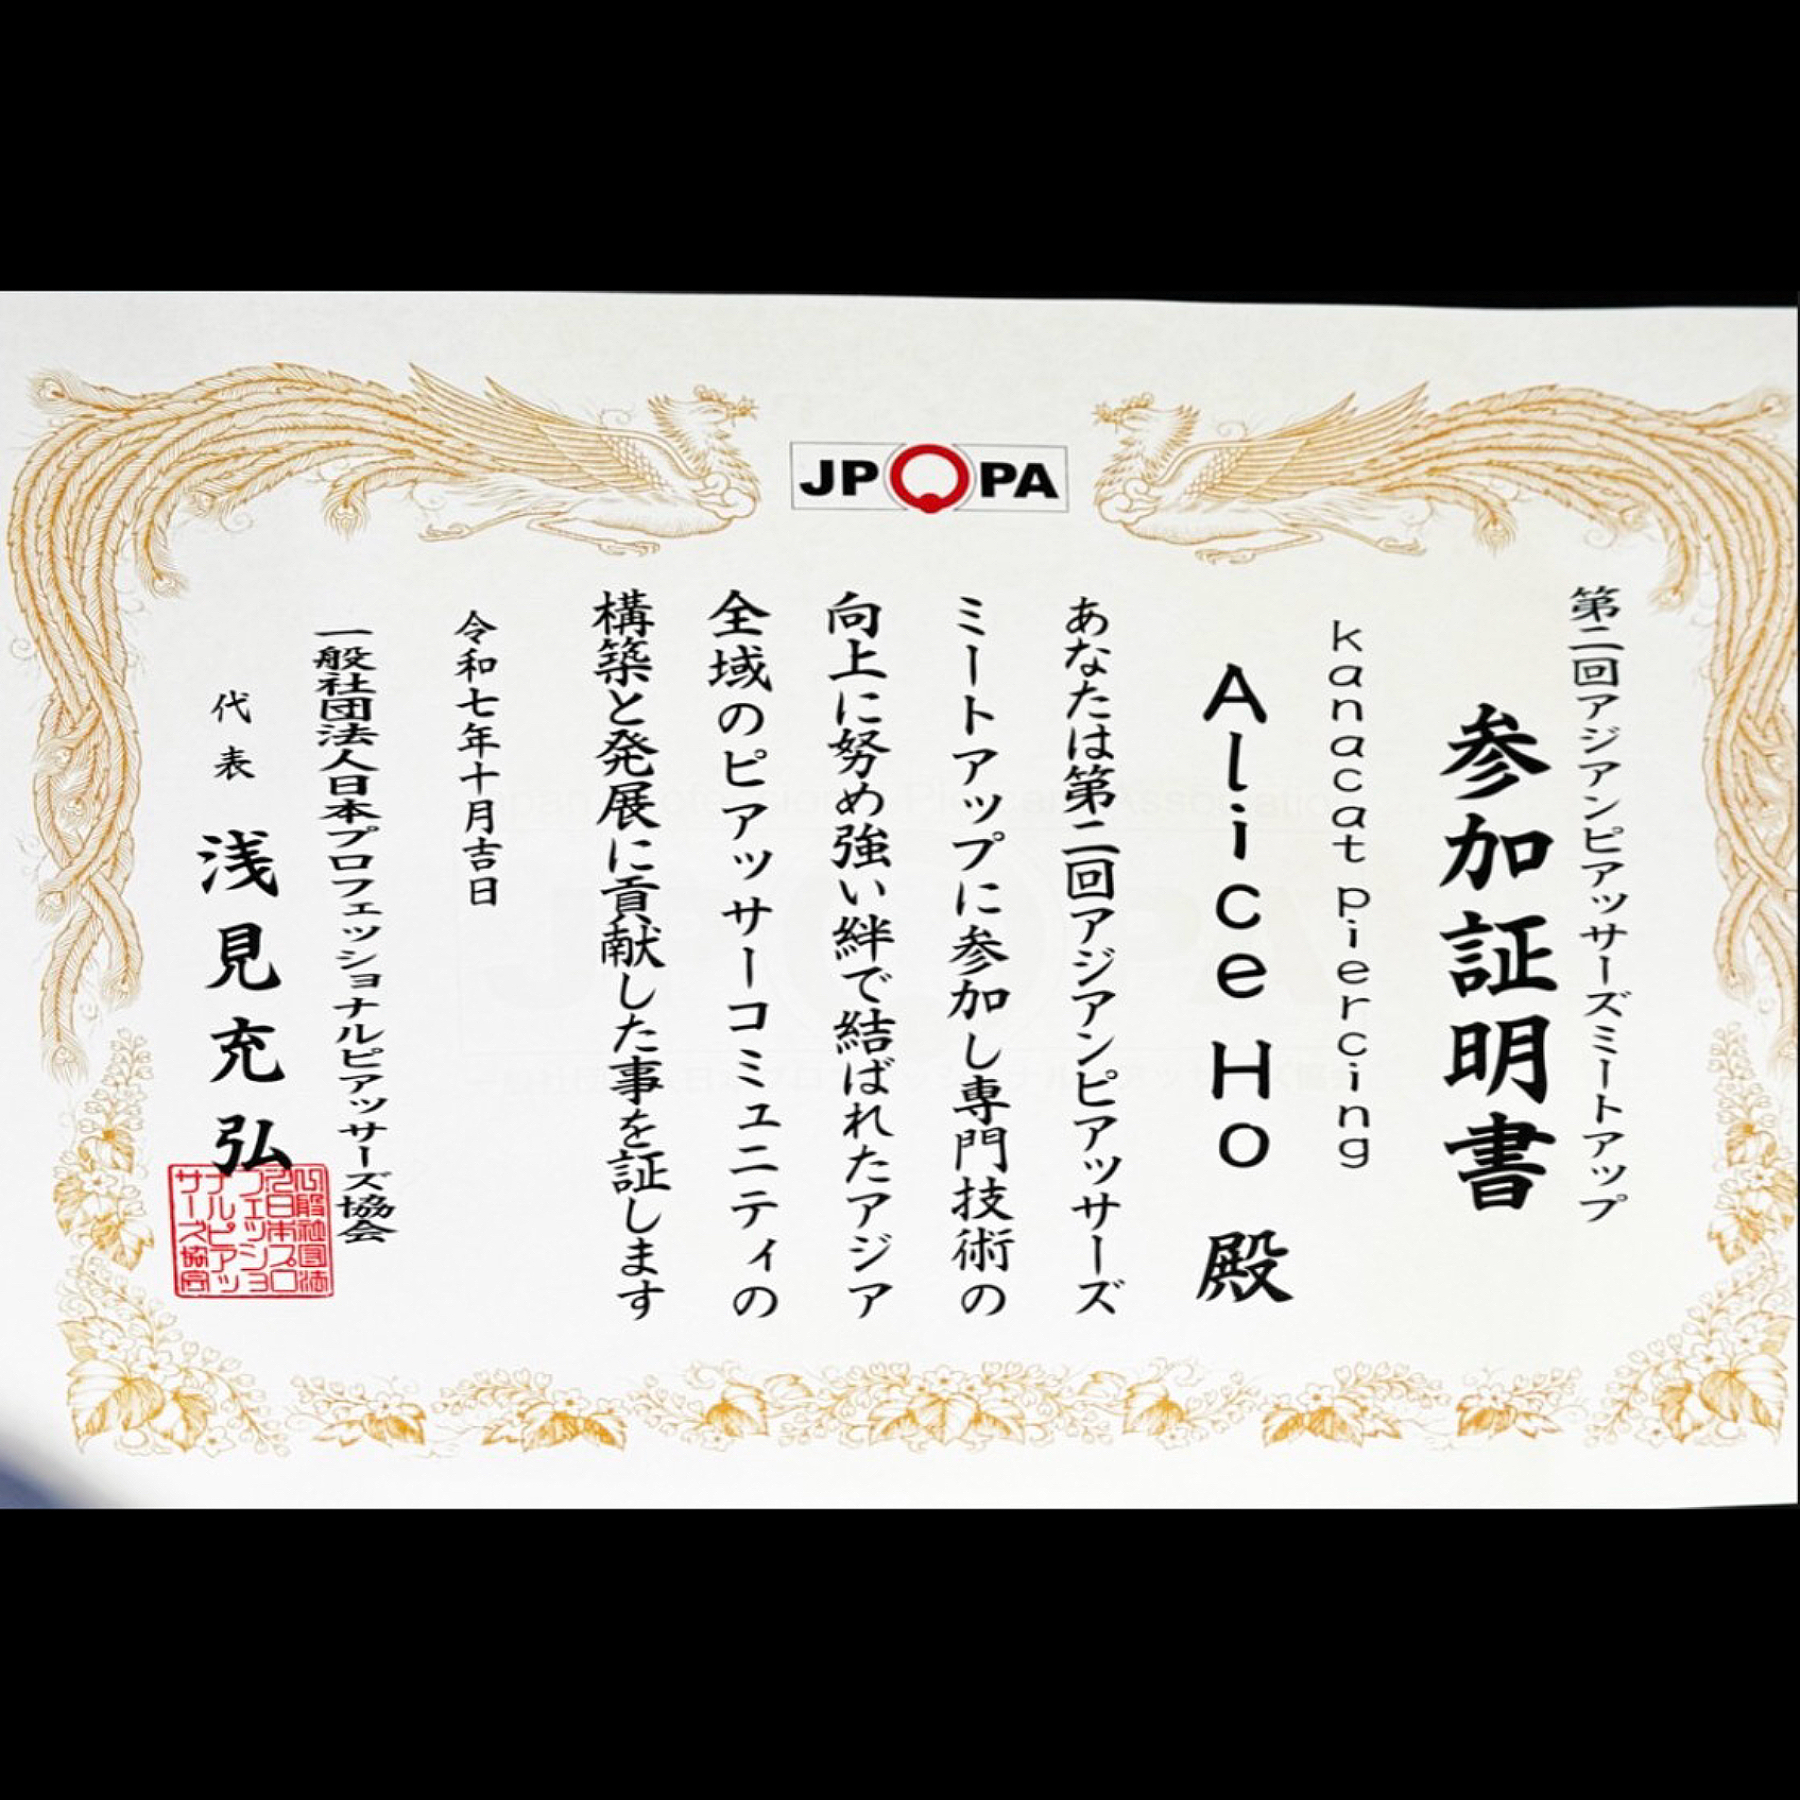 JPPA
第二回アジアンピアッサーズミートアップ
参加証明書
kanacat piercing
Alice Ho 殿
あなたは第二回アジアンピアッサーズ
ミートアップに参加し専門技術の
向上に努め強い絆で結ばれたアジア
全域のピアッサーコミュニティの
構築と発展に貢献した事を証します
令和七年十月吉日
一般社団法人日本プロフェッショナルピアッサーズ協会
代表 浅見充弘